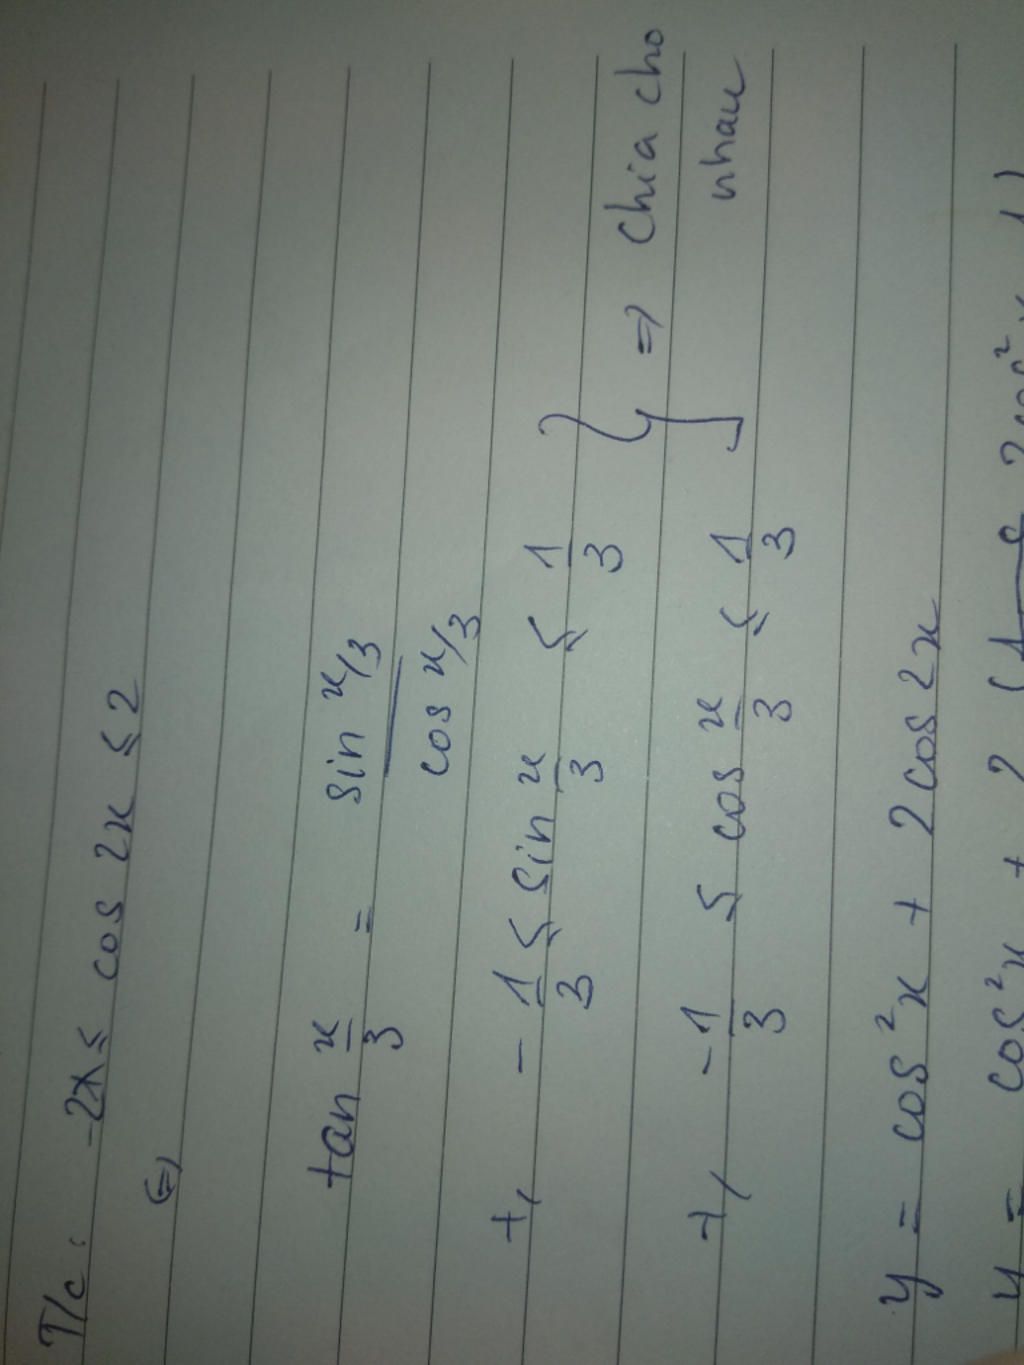 T/c: -2 ≤ cos 2x ≤ 2
(=)
tan x/3 = sin x/3 / cos x/3
+, -1/3 ≤ sin x/3 ≤ 1/3
+, -1/3 ≤ cos x/3 ≤ 1/3 } => chia cho
nhau
y = cos²x + 2cos2x
y = cos²x + 2